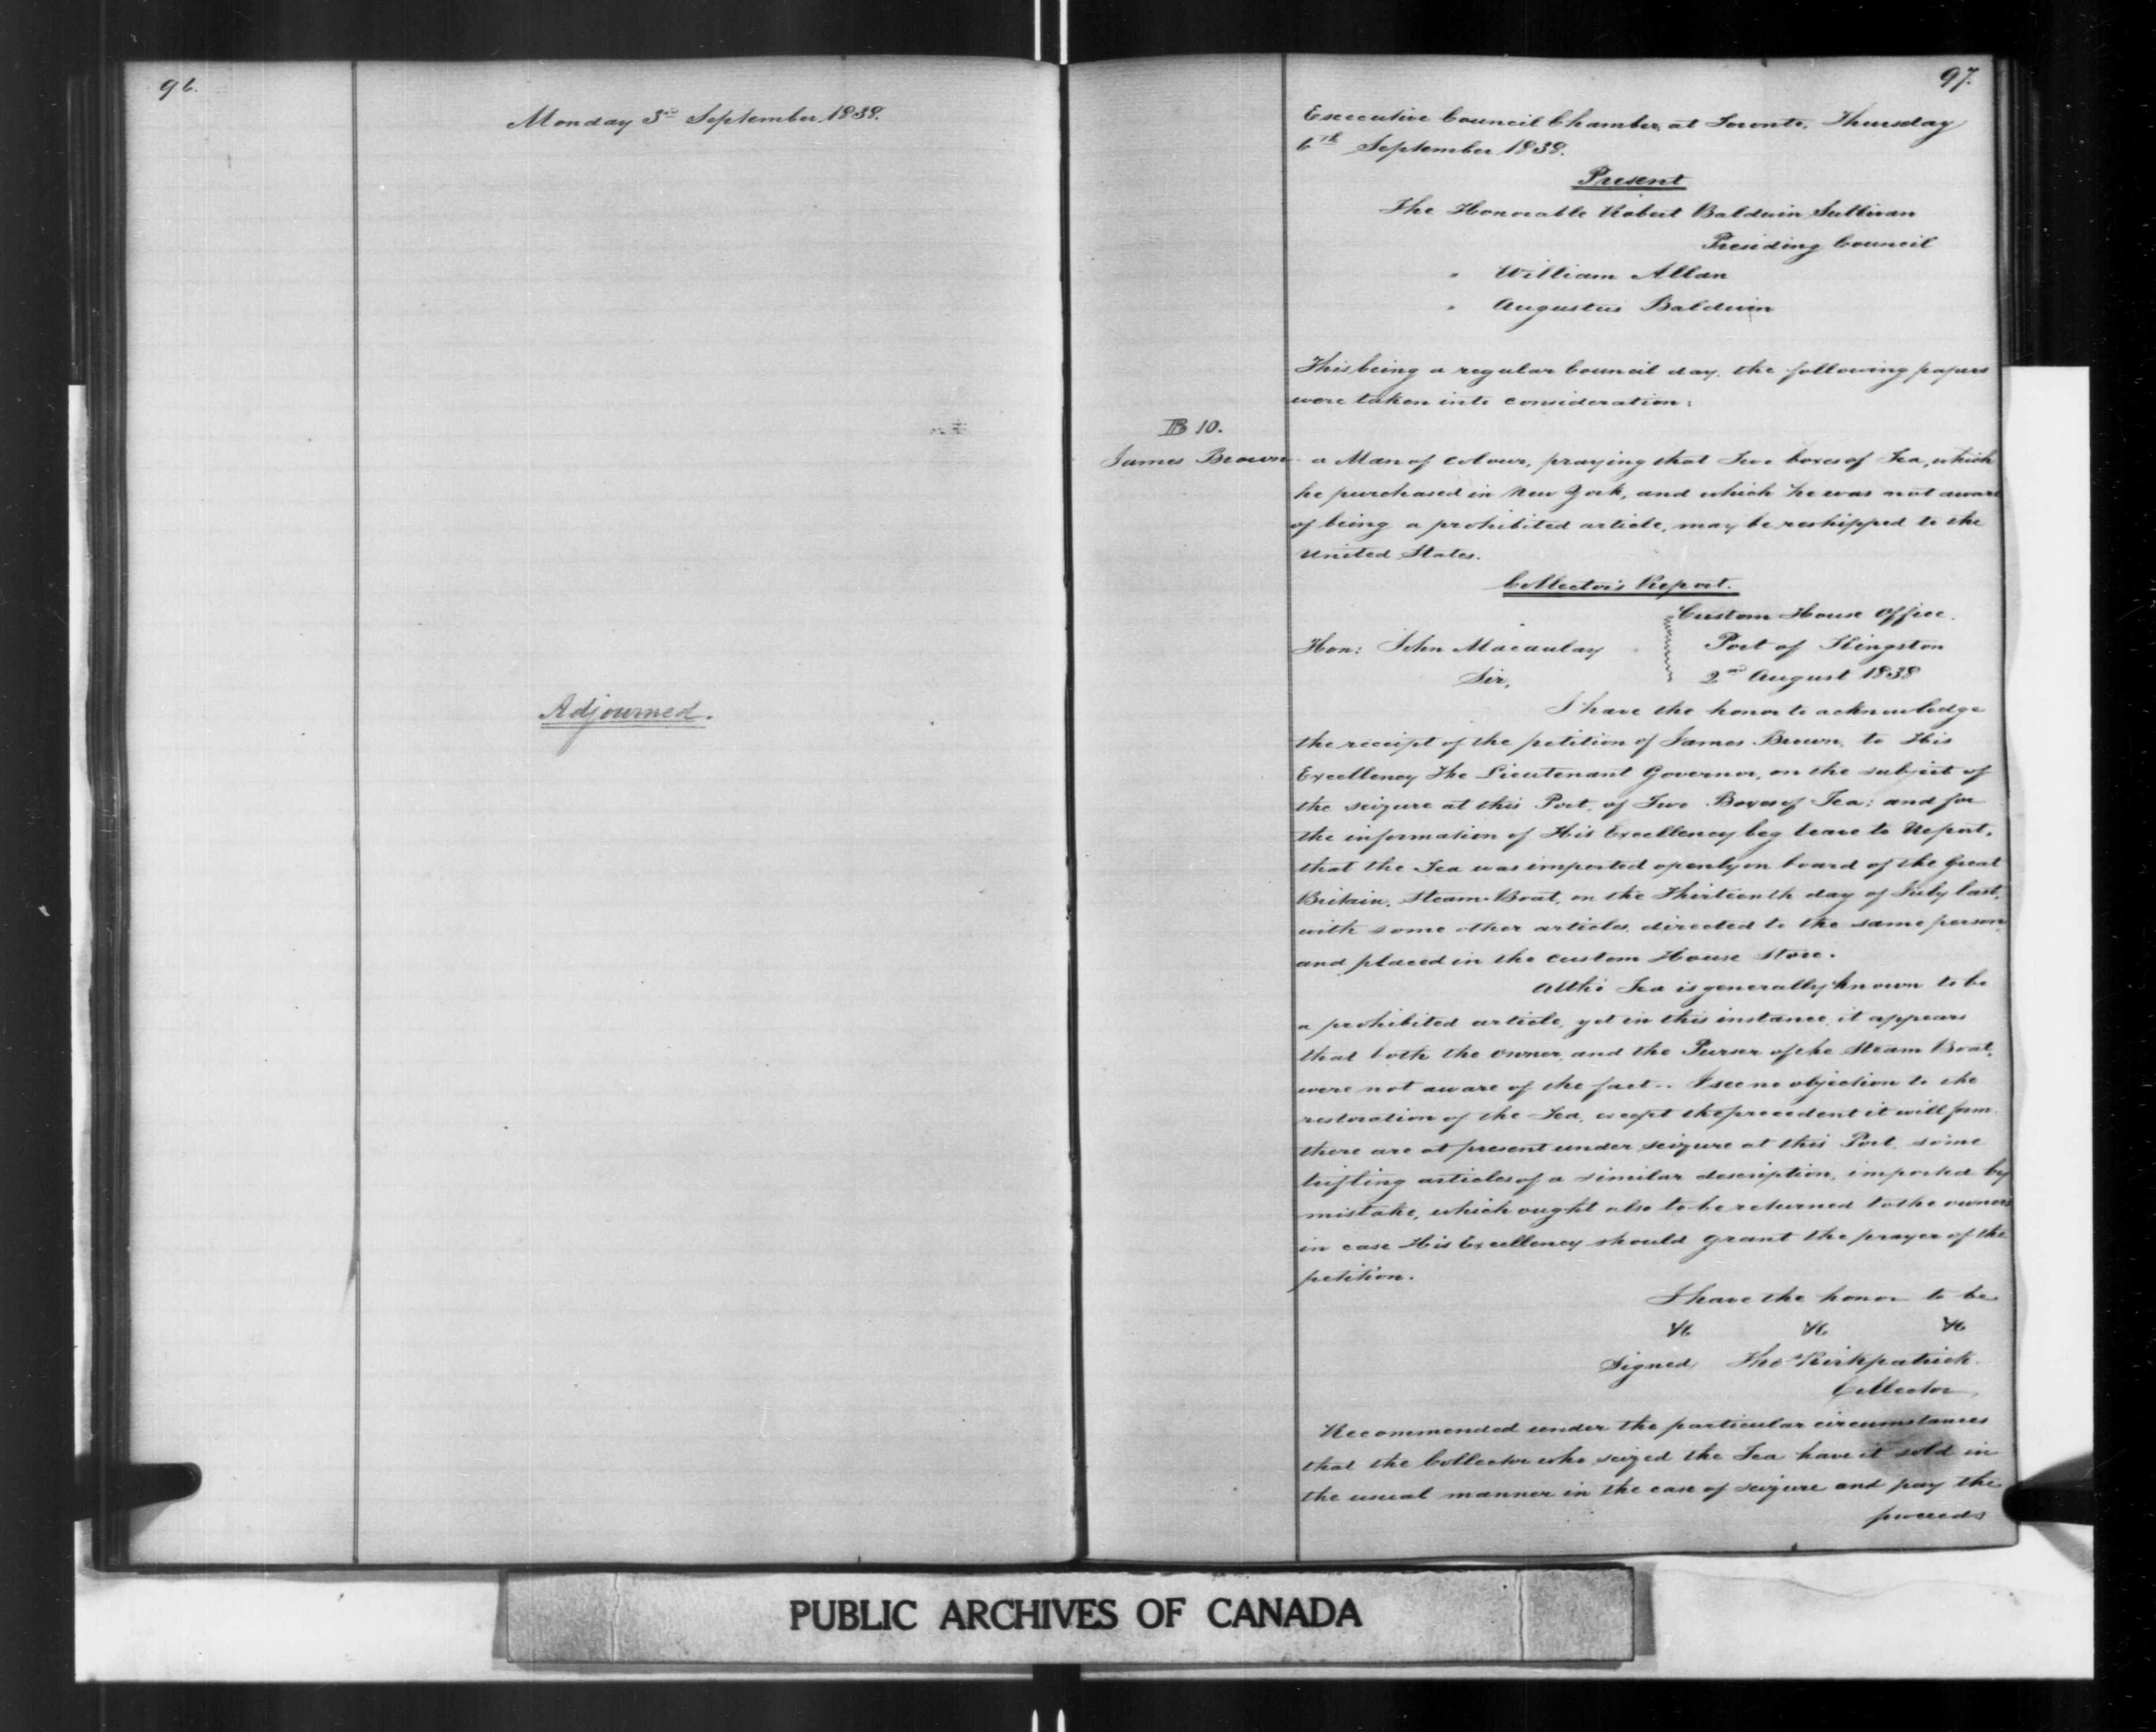 96.
Monday 3rd September 1838.
Adjourned.
97.
Executive Council Chamber, at Toronto, Thursday
6th September 1838.
Present
The Honorable Robert Baldwin Sullivan
Presiding Council
" William Allan
" Augustus Baldwin
This being a regular Council day, the following papers
were taken into consideration:
B 10.
James Brown - a Man of colour, praying that Two boxes of Tea, which
he purchased in New York, and which he was not aware
of being a prohibited article, may be reshipped to the
United States.
Collector's Report.
Custom House Office.
Hon: John Macaulay Port of Kingston
Sir, 2nd August 1838
I have the honor to acknowledge
the receipt of the petition of James Brown, to His
Excellency The Lieutenant Governor, on the subject of
the seizure at this Port, of Two Boxes of Tea; and for
the information of His Excellency beg leave to Report,
that the Tea was imported openly on board of the Great
Britain, Steam-Boat, on the Thirteenth day of July last,
with some other articles, directed to the same person
and placed in the Custom House Store.
Altho' Tea is generally known to be
a prohibited article, yet in this instance, it appears
that both the owner, and the Purser of the Steam Boat,
were not aware of the fact.. I see no objection to the
restoration of the Tea, except the precedent it will form.
there are at present under seizure at this Port, some
trifling articles of a similar description, imported by
mistake, which ought also to be returned to the owners
in case His Excellency should grant the prayer of the
petition.
I have the honor to be
&c &c &c
Signed Thos Kirkpatrick.
Collector,
Recommended under the particular circumstances
that the Collector who seized the Tea have it sold in
the usual manner in the case of seizure and pay the
proceeds
PUBLIC ARCHIVES OF CANADA